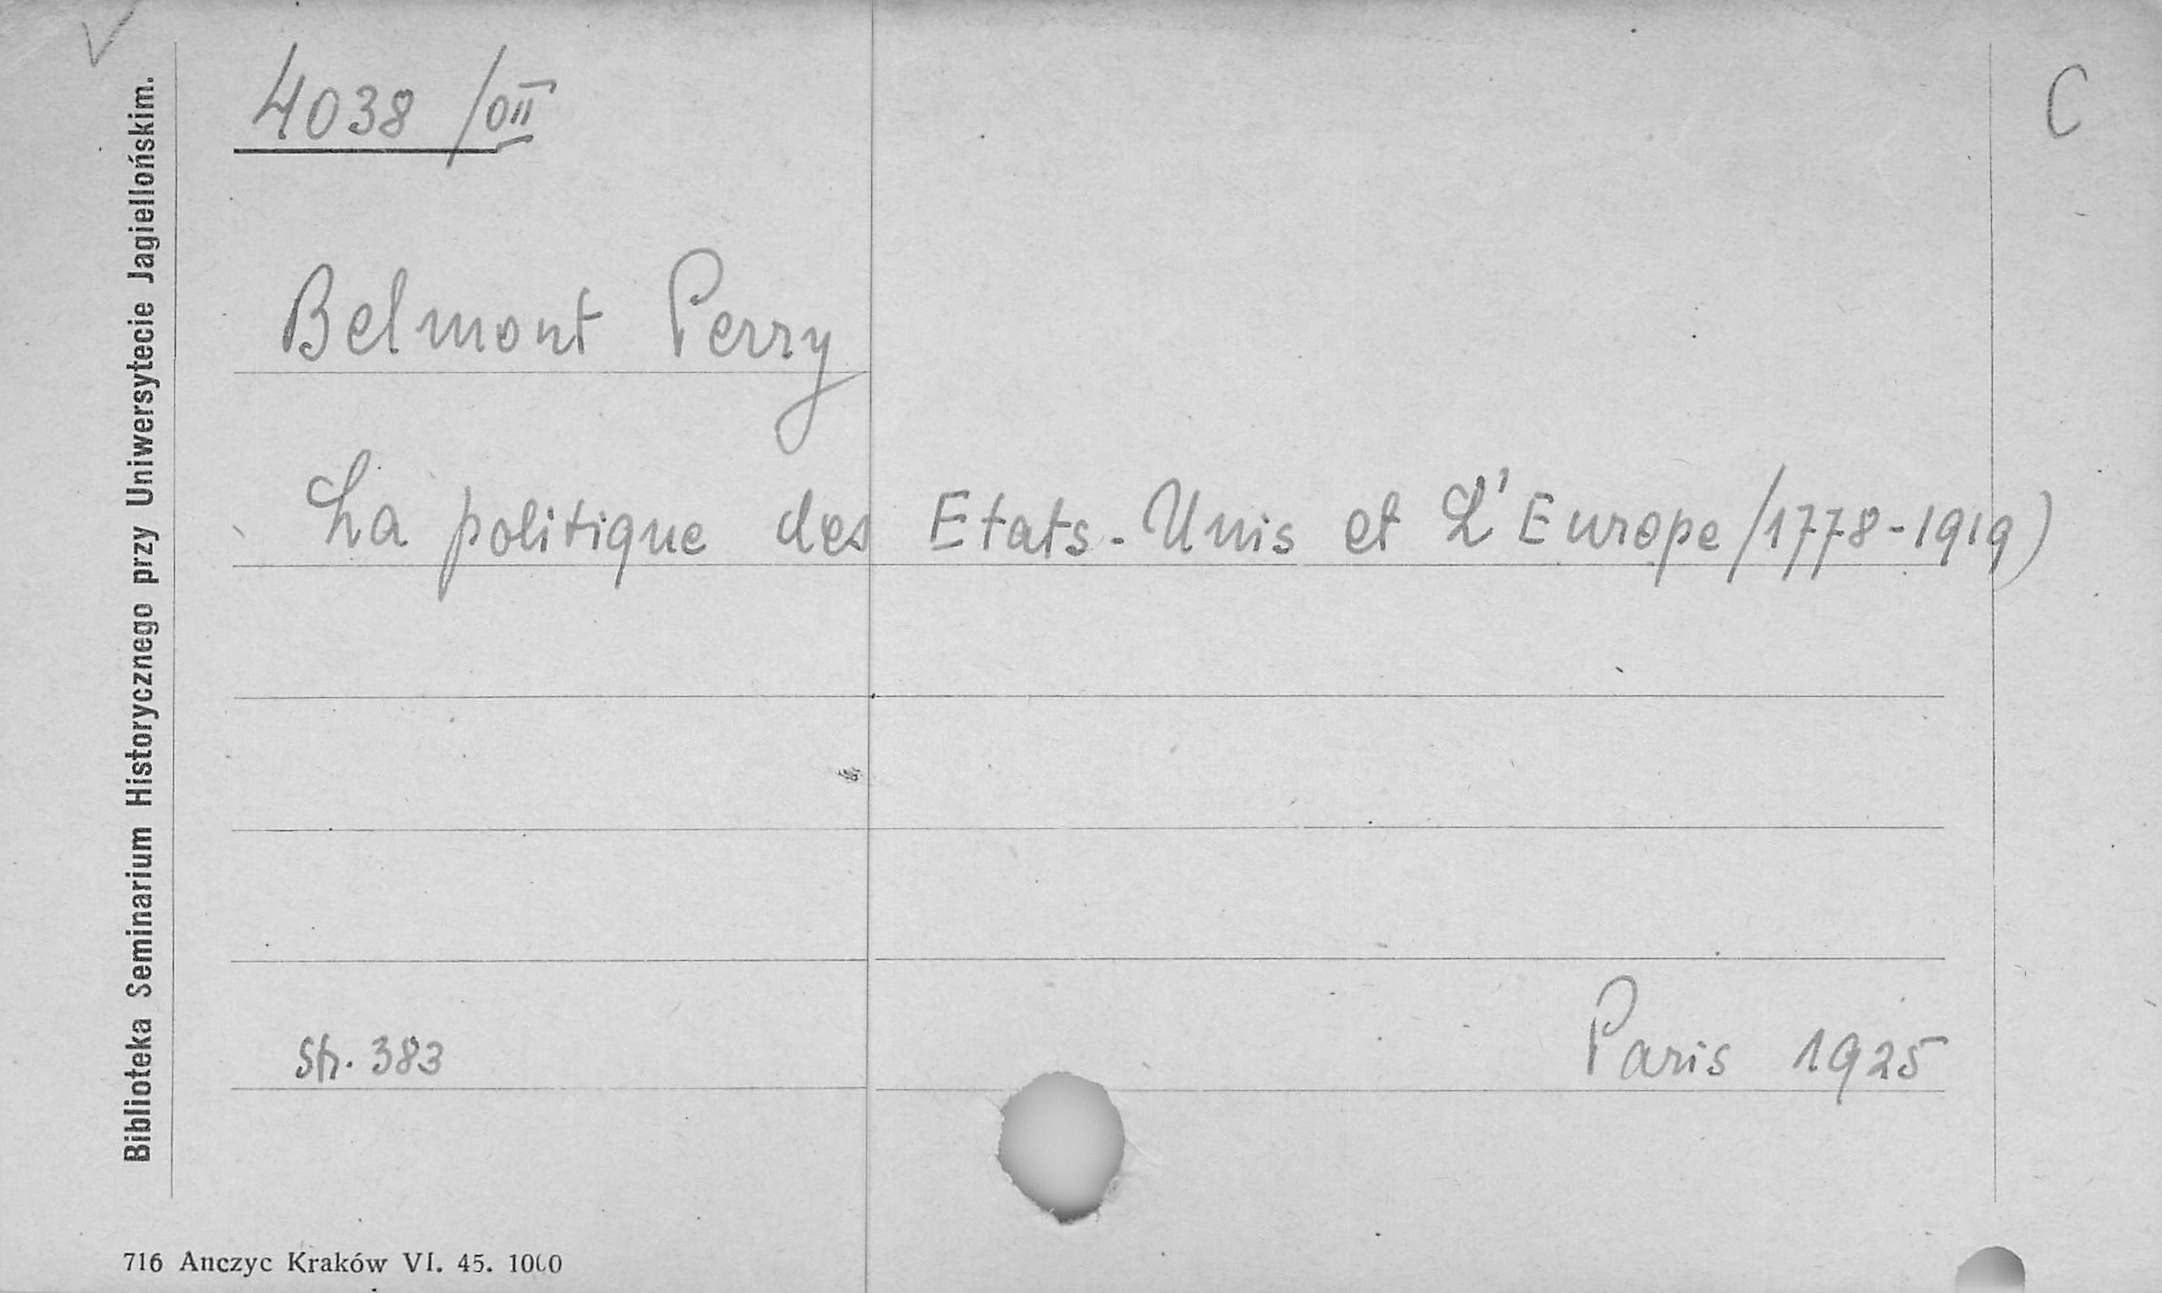 4038 /OII
C
Belmont Perry
La politique des Etats-Unis et L'Europe /1778-1919)
Str. 383
Paris 1925
Biblioteka Seminarium Historycznego przy Uniwersytecie Jagiellońskim.
716 Anczyc Kraków VI. 45. 1000